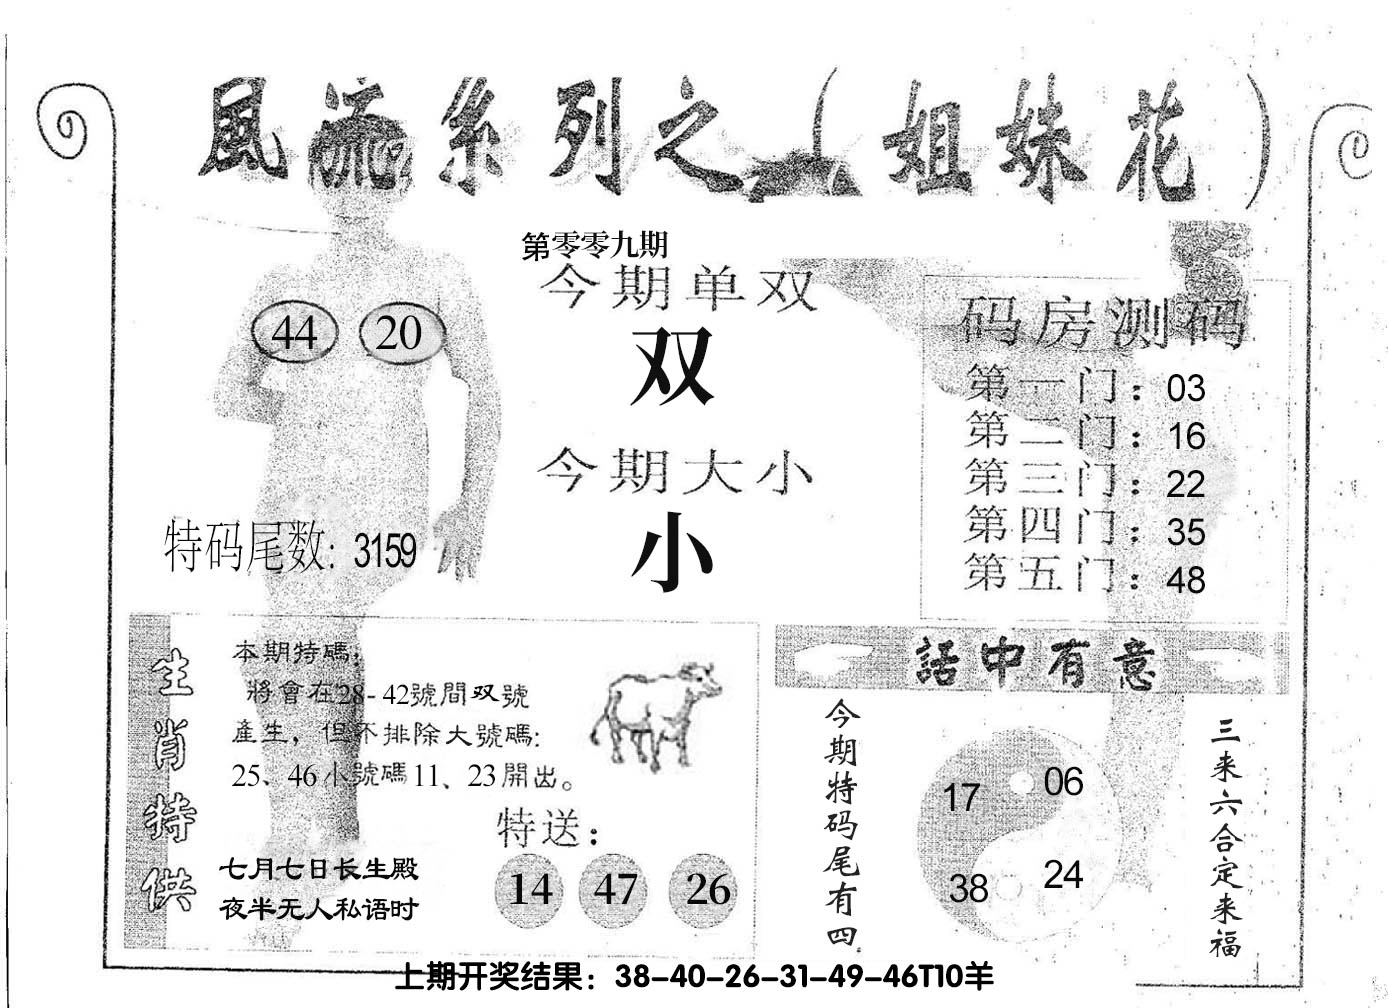 風流系列之（姐妹花）
第零零九期
今期单双
双
今期大小
小
44 20
特码尾数: 3159
码房测码
第一门：03
第二门：16
第三门：22
第四门：35
第五门：48
生肖特供
本期特碼，
將會在28-42號間双號
產生，但不排除大號碼:
25、46小號碼11、23開出。
特送：
14 47 26
七月七日长生殿
夜半无人私语时
話中有意
今期特码尾有四
17 06
38 24
三来六合定来福
上期开奖结果：38-40-26-31-49-46T10羊